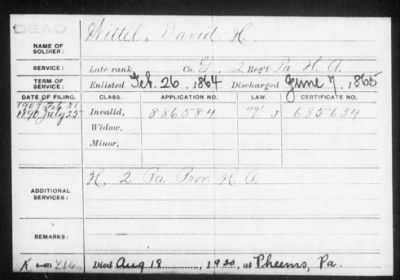 DEAD
NAME OF SOLDIER: Wittel, David H.
SERVICE: Late rank Co. G, 2 Reg't Pa H. A.
TERM OF SERVICE: Enlisted Feb. 26, 1864 Discharged June 7, 1865
DATE OF FILING. CLASS. APPLICATION NO. LAW. CERTIFICATE NO.
1907 Feb 21
1890 July 25 Invalid, 886584 685634
Widow,
Minor,
ADDITIONAL SERVICES: H. 2 Pa Prov. H. A.
REMARKS:
Died Aug 18, 1920, at Rheems, Pa.